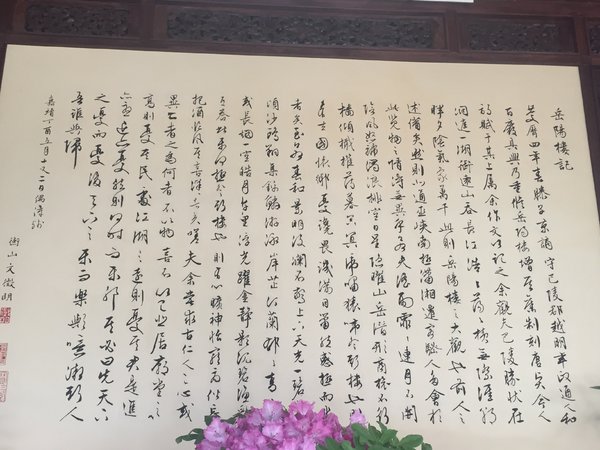 岳陽樓記
慶曆四年春滕子京謫守巴陵郡越明年政通人和
百廢具興乃重脩岳陽樓增其舊制刻唐賢今人
詩賦于其上屬余作文以記之余觀夫巴陵勝狀在
洞庭一湖銜遠山吞長江浩浩蕩蕩橫無際涯朝
暉夕陰氣象萬千此則岳陽樓之大觀也前人之
述備矣然則北通巫峽南極瀟湘遷客騷人多會於
此覽物之情得無異乎若夫淫雨霏霏連月不開
陰風怒號濁浪排空日星隱曜山岳潛形商旅不行
檣傾楫摧薄暮冥冥虎嘯猿啼登斯樓也則
有去國懷鄉憂讒畏譏滿目蕭然感極而悲
者矣至若春和景明波瀾不驚上下天光一碧
頃沙鷗翔集錦鱗游泳岸芷汀蘭郁郁青
或長烟一空皓月千里浮光躍金靜影沉璧漁歌
互答此樂何極登斯樓也則心曠神怡寵辱偕忘
把酒臨風其喜洋洋者矣嗟夫余嘗求古仁人之心或
異二者之為何者不以物喜不以己悲居廟堂之
高則憂其民處江湖之遠則憂其君是進
亦憂退亦憂然則何時而樂耶其必曰先天下
之憂而憂後天下之樂而樂歟噫微斯人
吾誰與歸
嘉靖丁酉五月十又二日偶書
衡山文徵明